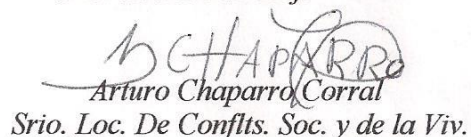 CHAPARRO
Arturo Chaparro Corral
Srio. Loc. De Conflts. Soc. y de la Viv